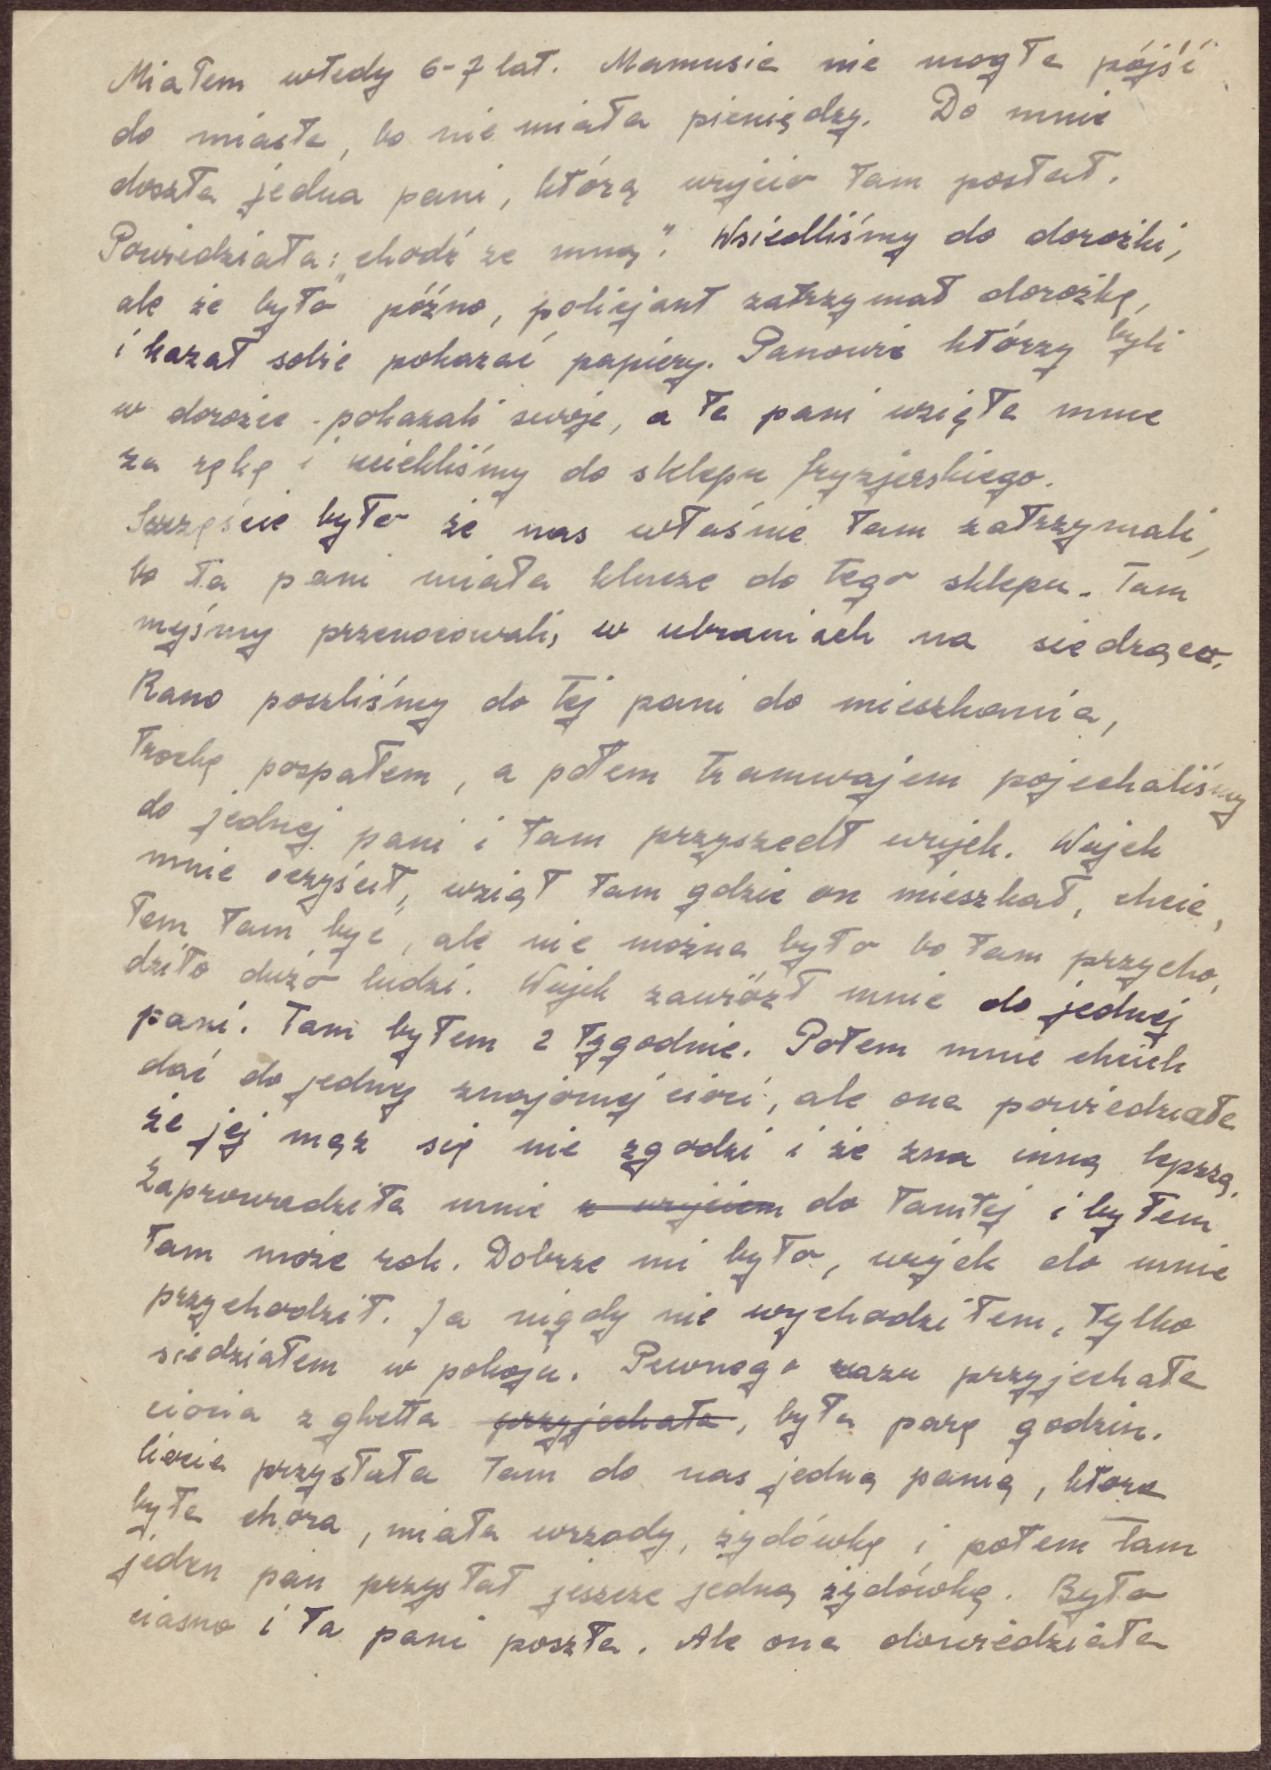 Miałem wtedy 6-7 lat. Mamusia nie mogła pójść
do miasta, bo nie miała pieniędzy. Do mnie
doszła jedna pani, którą wujcio tam posłał.
Powiedziała: „chodź ze mną". Wsiedliśmy do dorożki,
ale że było późno, policjant zatrzymał dorożkę,
i kazał sobie pokazać papiery. Panowie którzy byli
w dorożce pokazali swoje, a ta pani wzięła mnie
za rękę i uciekliśmy do sklepu fryzjerskiego.
Szczęście było że nas właśnie tam zatrzymali,
bo ta pani miała klucze do tego sklepu. Tam
myśmy przenocowali, w ubraniach na siedząco.
Rano poszliśmy do tej pani do mieszkania,
trochę pospałem, a potem tramwajem pojechaliśmy
do jednej pani i tam przyszedł wujek. Wujek
mnie oczyścił, wziął tam gdzie on mieszkał, chcia,
łem tam być, ale nie można było bo tam przycho,
dziło dużo ludzi. Wujek zawiózł mnie do jednej
pani. Tam byłem 2 tygodnie. Potem mnie chcieli
dać do jednej znajomej cioci, ale ona powiedziała
że jej mąż się nie zgodzi i że zna inną lepszą.
Zaprowadziła mnie z wujciem do tamtej i byłem
tam może rok. Dobrze mi było, wujek do mnie
przychodził. Ja nigdy nie wychodziłem, tylko
siedziałem w pokoju. Pewnego razu przyjechała
ciocia z ghetta przyjechała, była parę godzin.
Ciocia przysłała tam do nas jedną panią, która
była chora, miała wrzody, żydówkę i potem tam
jeden pan przysłał jeszcze jedną żydówkę. Było
ciasno i ta pani poszła. Ale ona dowiedziała